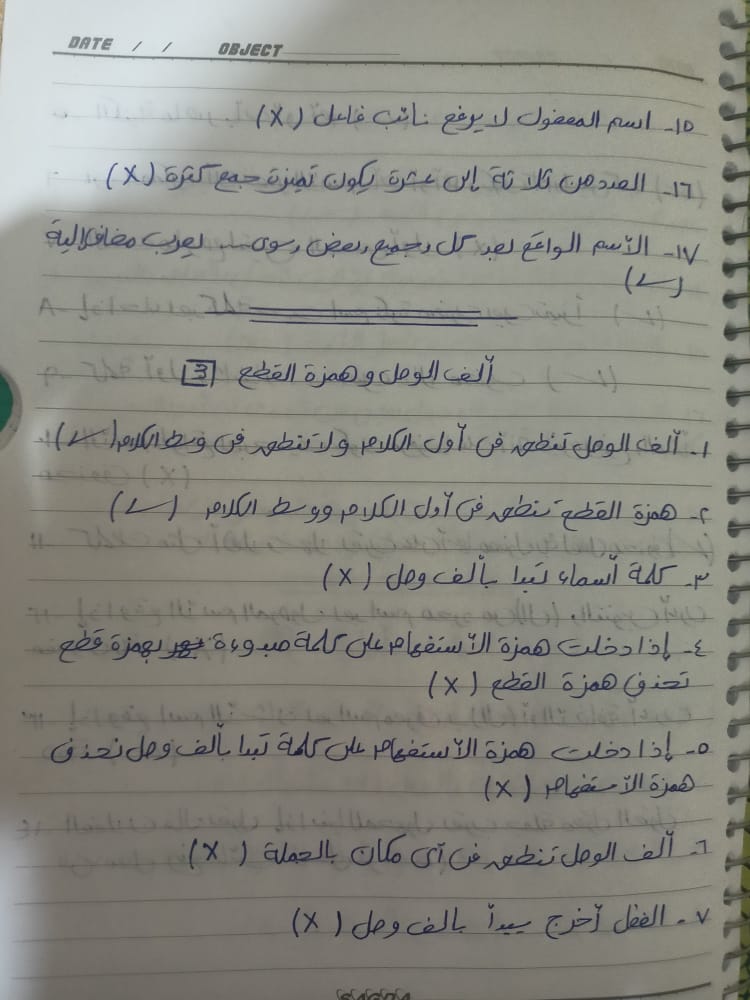 DATE / / OBJECT
١٥- اسم المفعول لا يرفع نائب فاعل (X)
١٦- العدد من ثلاثة إلى عشرة يكون تميزة جمع كثرة (X)
١٧- الأسم الواقع بعد كل وجميع وبعض وسوى... يعرب مضاف إلية
(✓)
ألف الوصل وهمزة القطع 3
١- ألف الوصل تنطق فى أول الكلام ولا تنطق فى وسط الكلام (✓)
٢- همزة القطع تنطق فى أول الكلام ووسط الكلام (✓)
٣- كلمة أسماء تبدا بألف وصل (X)
٤- إذا دخلت همزة الأستفهام على كلمة مبدوءة بهمزة قطع
تحذف همزة القطع (X)
٥- إذا دخلت همزة الأستفهام على كلمة تبدا بألف وصل تحذف
همزة الأستفهام (X)
٦- ألف الوصل تنطق فى أى مكان بالجملة (X)
٧- الفعل أخرج يبدأ بالف وصل (X)